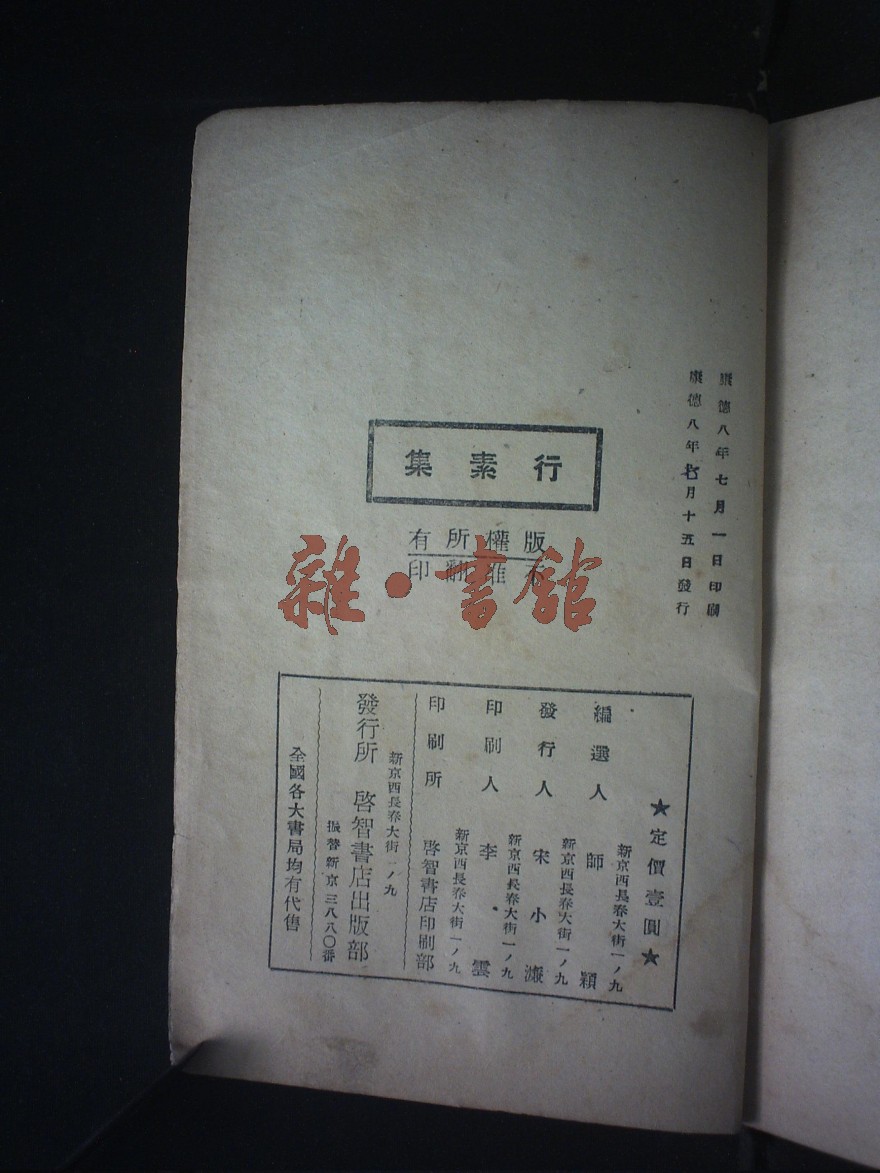 康德八年七月一日印刷
康德八年七月十五日發行
行素集
版權所有
不准翻印
雜·書館
★定價壹圓★
新京西長春大街一ノ九
編選人 師穎
新京西長春大街一ノ九
發行人 宋小濂
新京西長春大街一ノ九
印刷人 李雲
新京西長春大街一ノ九
印刷所 啓智書店印刷部
新京西長春大街一ノ九
發行所 啓智書店出版部
振替新京三八八〇番
全國各大書局均有代售